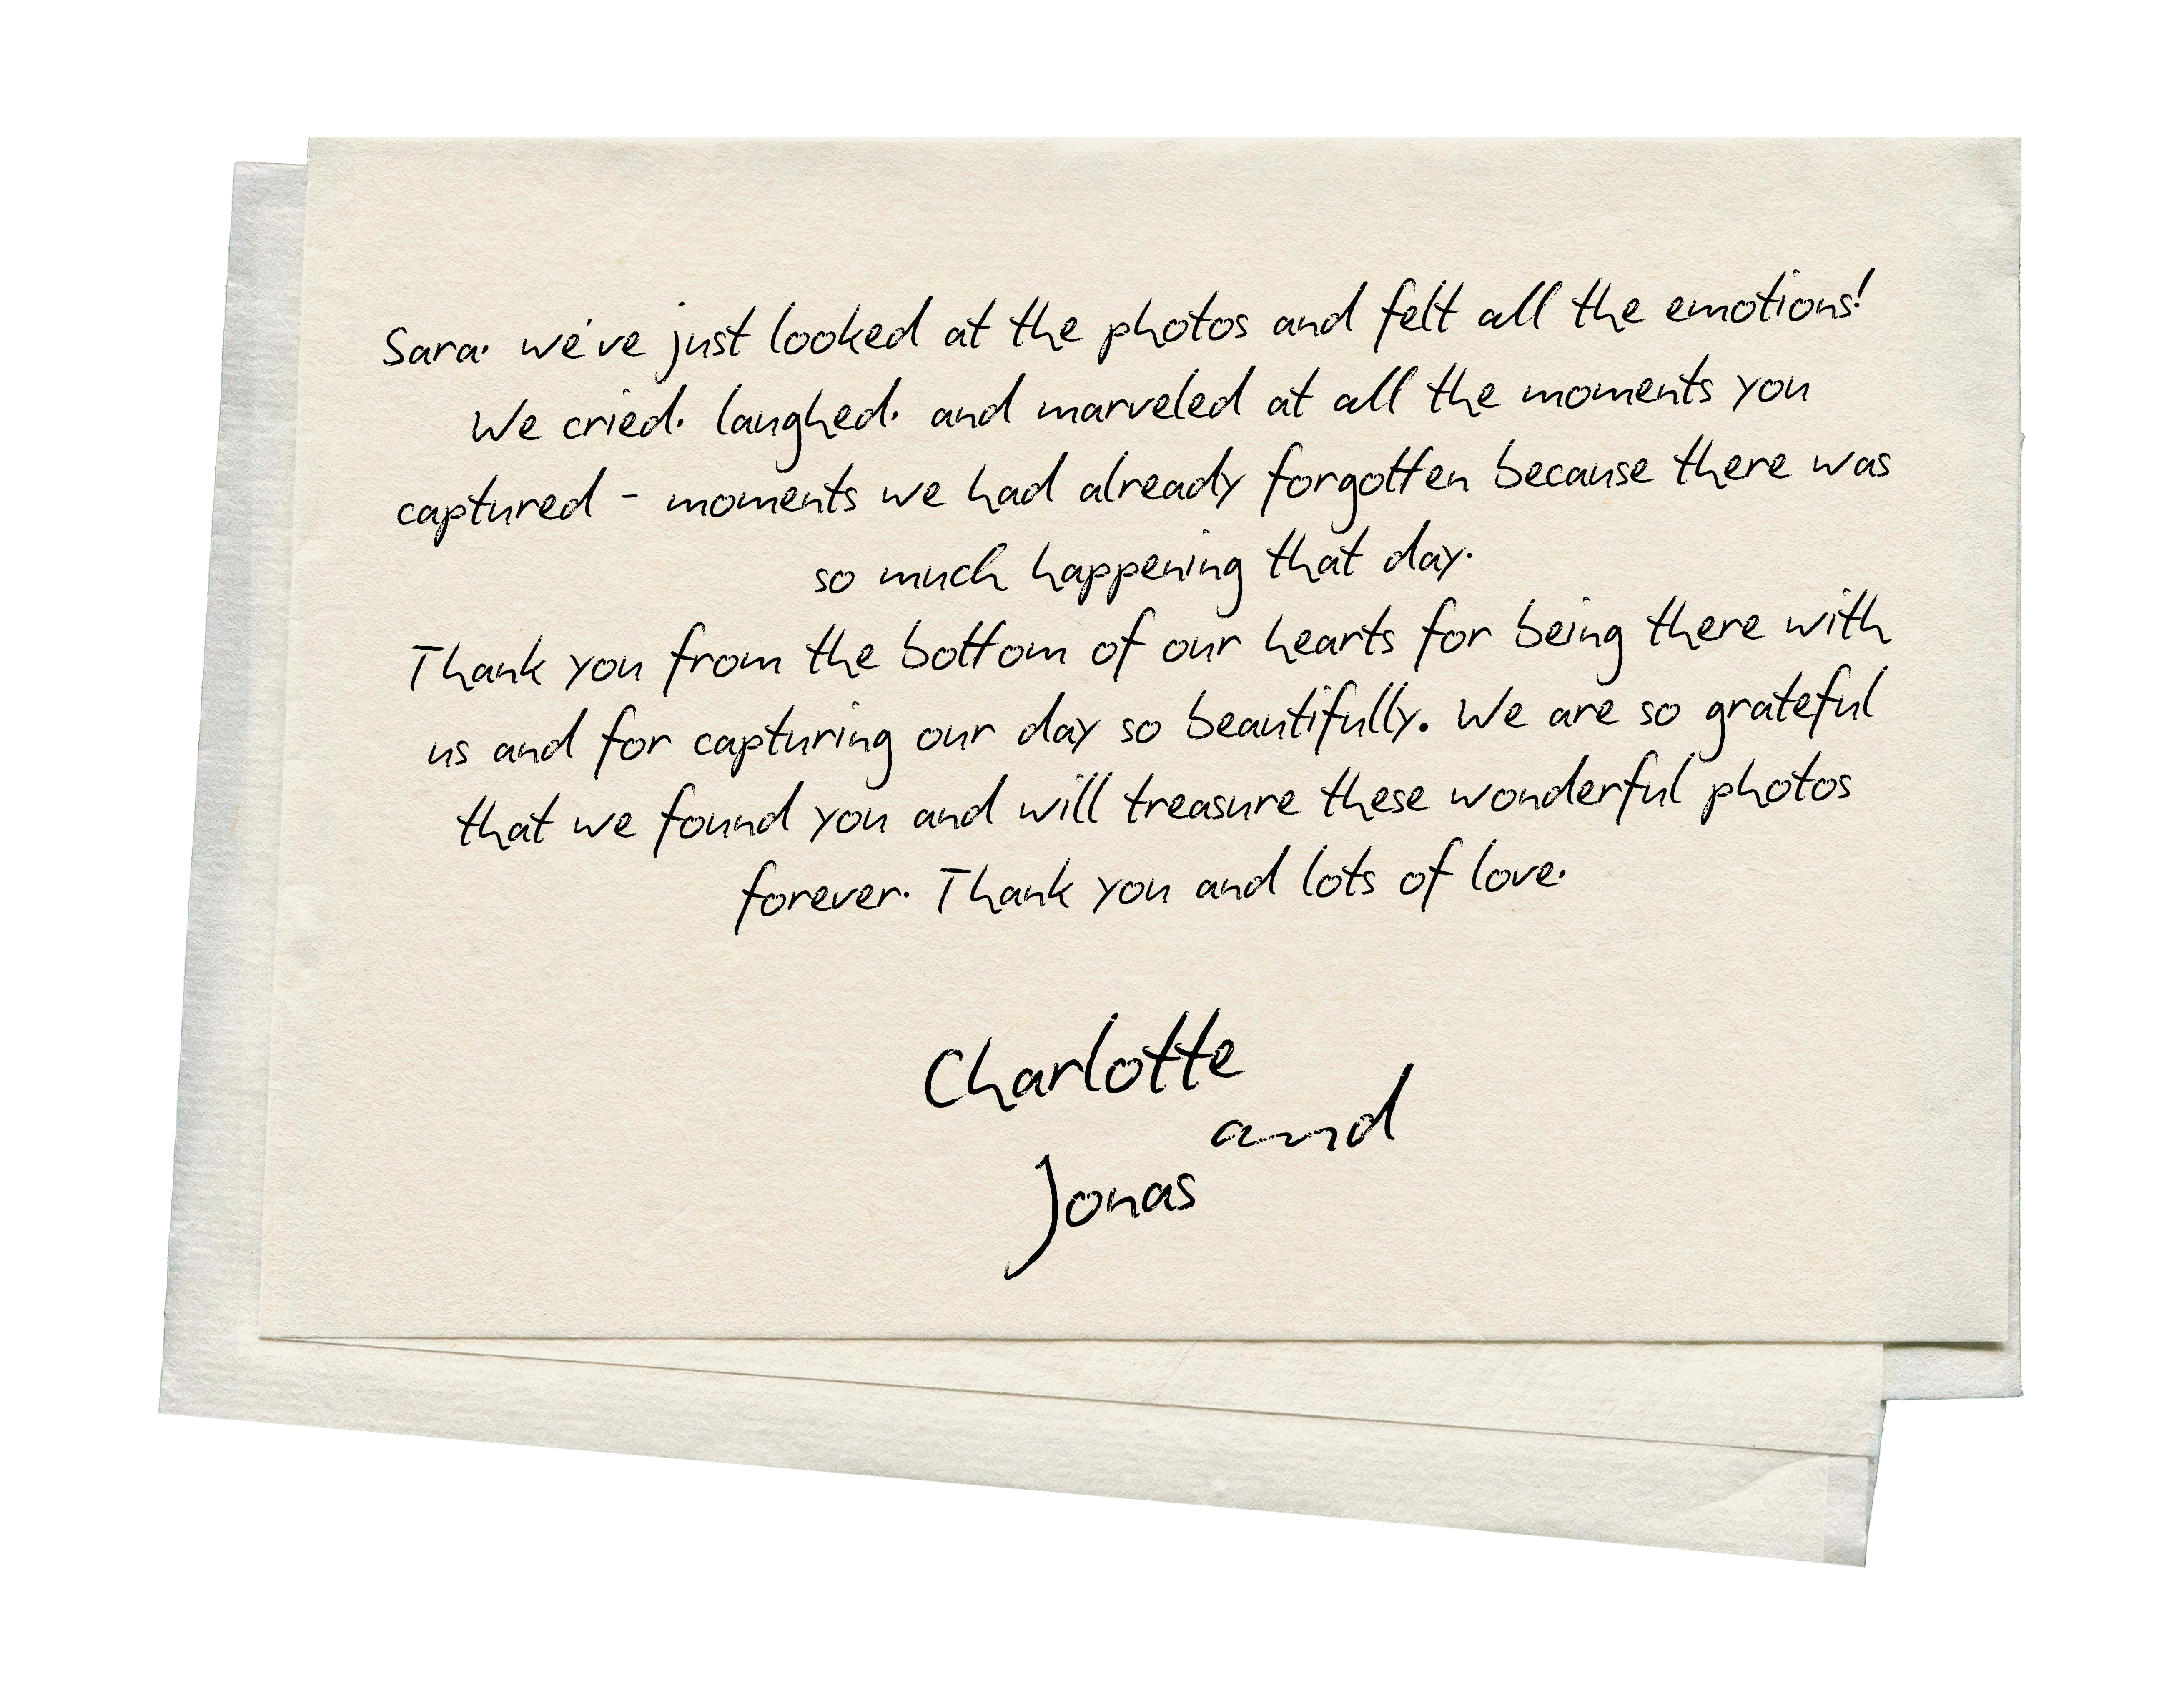 Sara, we've just looked at the photos and felt all the emotions!
We cried, laughed, and marveled at all the moments you
captured - moments we had already forgotten because there was
so much happening that day.
Thank you from the bottom of our hearts for being there with
us and for capturing our day so beautifully. We are so grateful
that we found you and will treasure these wonderful photos
forever. Thank you and lots of love.
Charlotte
and
Jonas